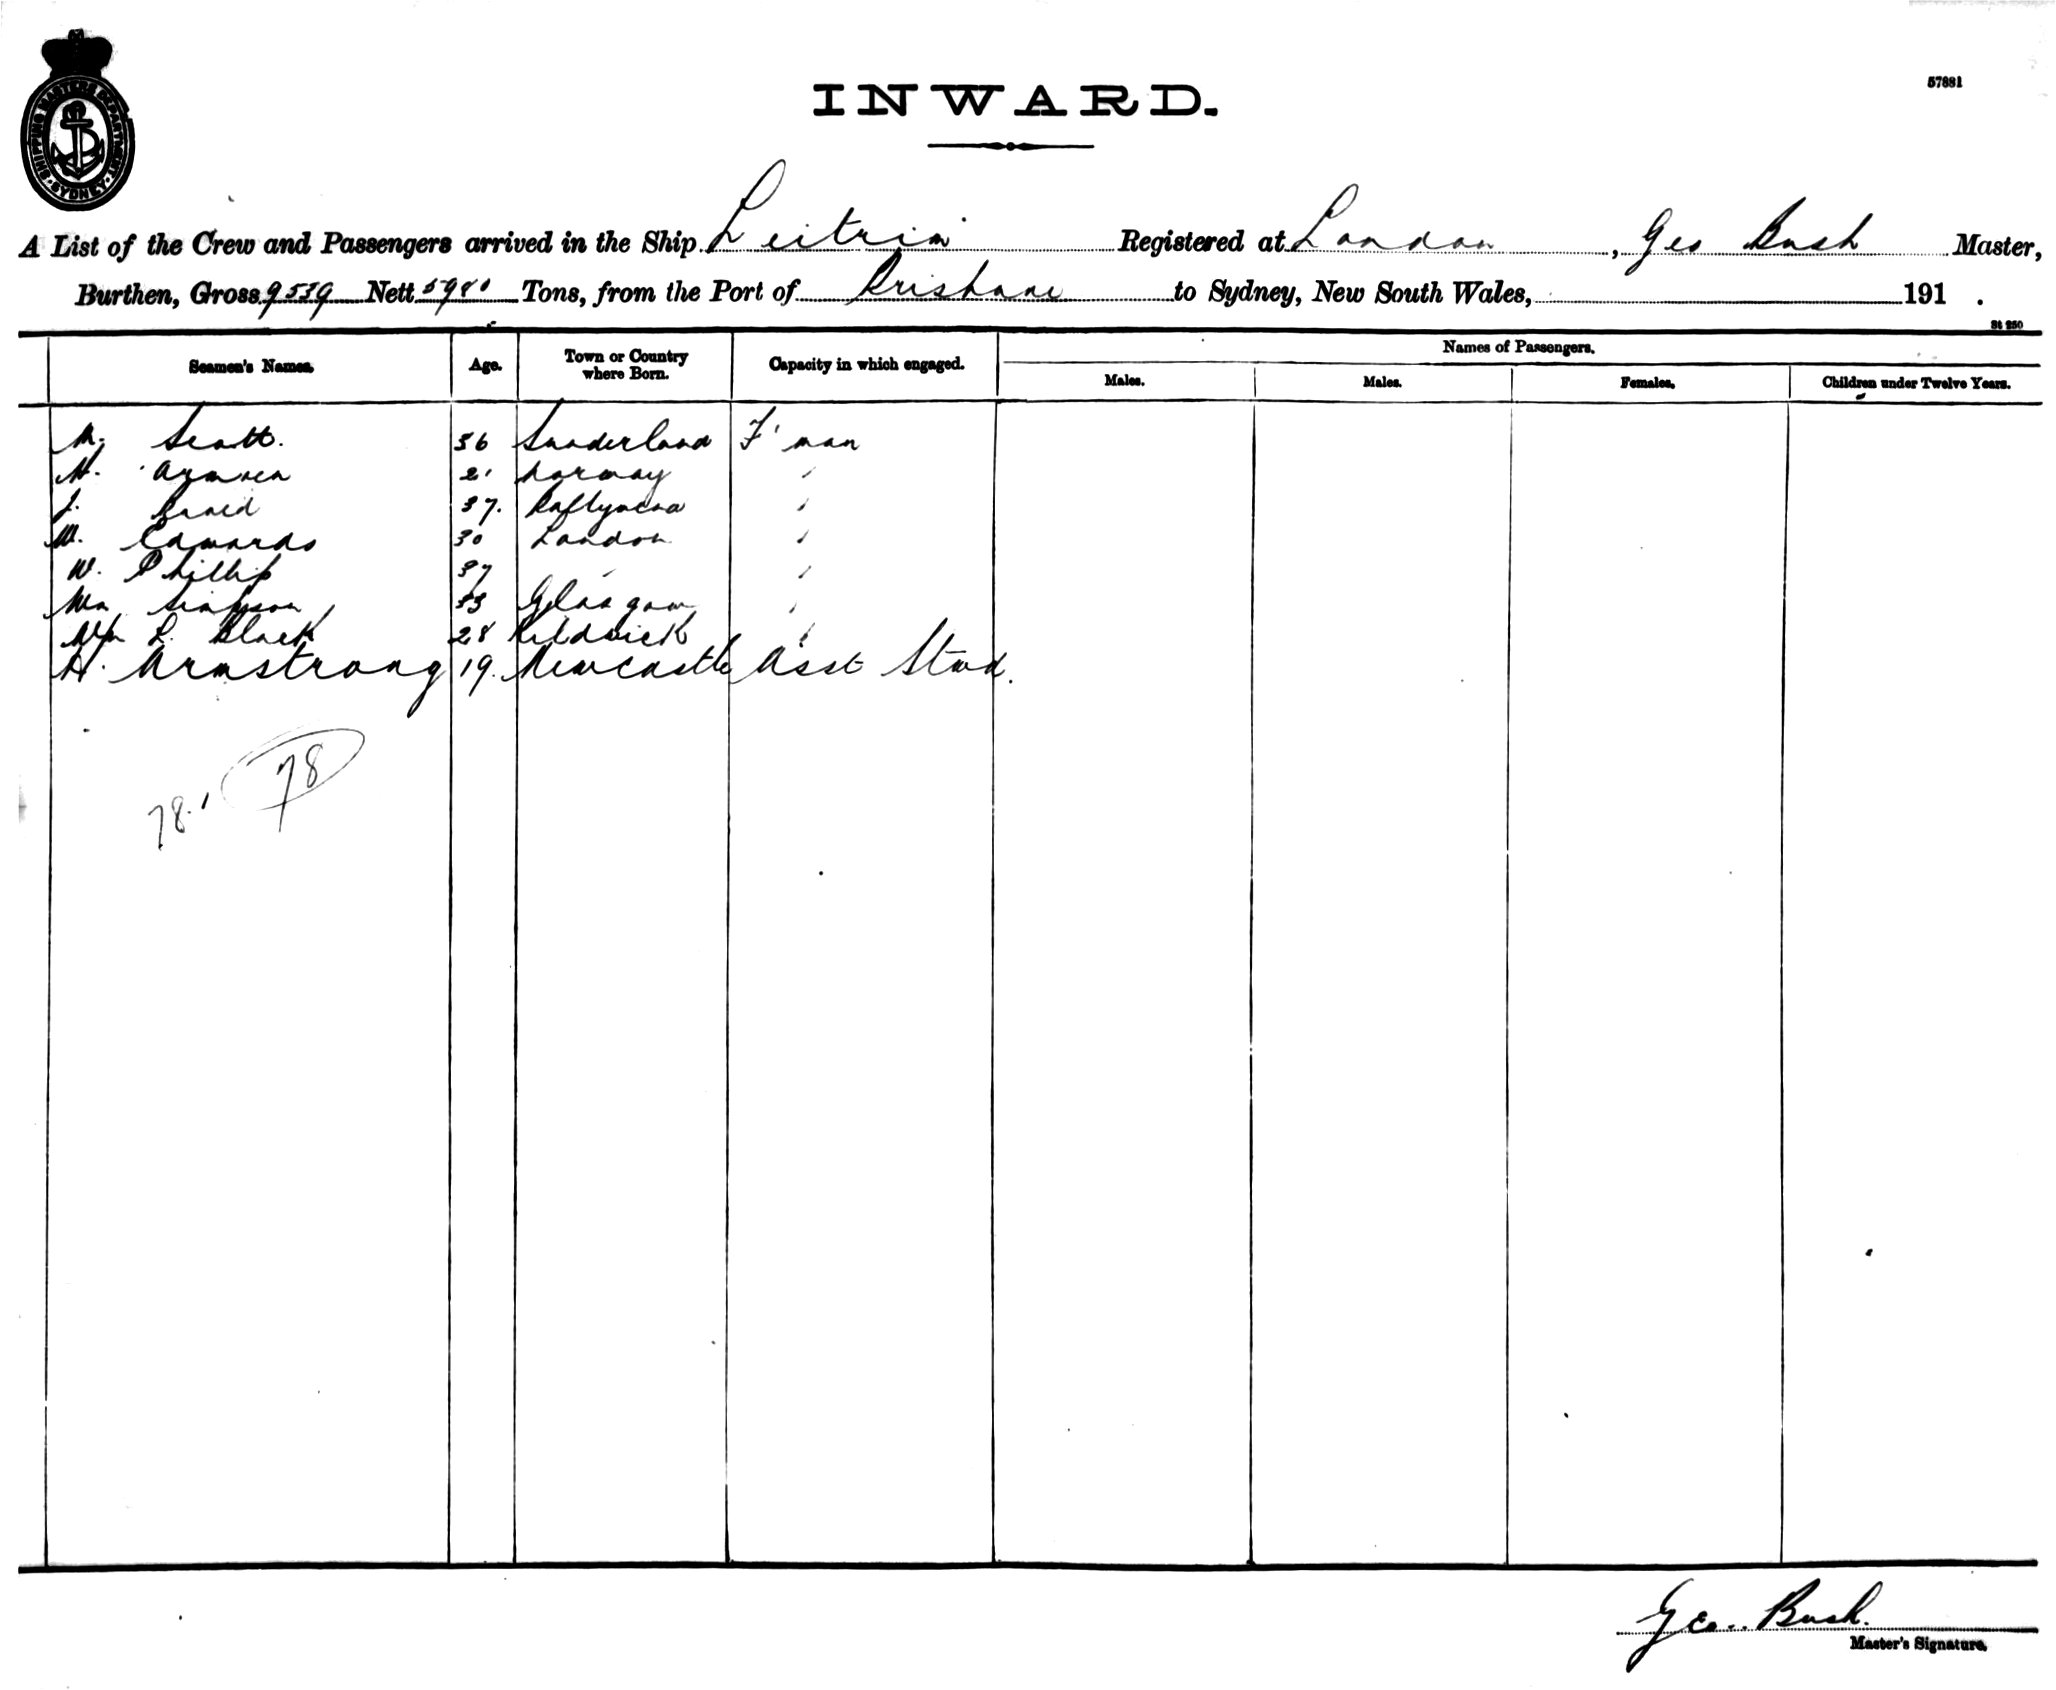 SHIPPING MASTERS DEPARTMENT · SYDNEY ·
57881
INWARD.
A List of the Crew and Passengers arrived in the Ship Leitrim Registered at London, Geo Bush Master,
Burthen, Gross 9539 Nett 5980 Tons, from the Port of Brisbane to Sydney, New South Wales, 191 .
St 250
Seamen's Names. Age. Town or Country where Born. Capacity in which engaged. Names of Passengers.
Males. Males. Females. Children under Twelve Years.
M. Scott. 36 Sunderland F'man
21 Norway "
J. Baird 37. Ballymena "
W. Edwards 30 London "
W. Phillip 37 " "
Wm Simpson 33 Glasgow "
Wm L. Black 28 "
H. Armstrong 19. Newcastle Asst Stwd.
78
78.1
Geo. Bush.
Master's Signature.